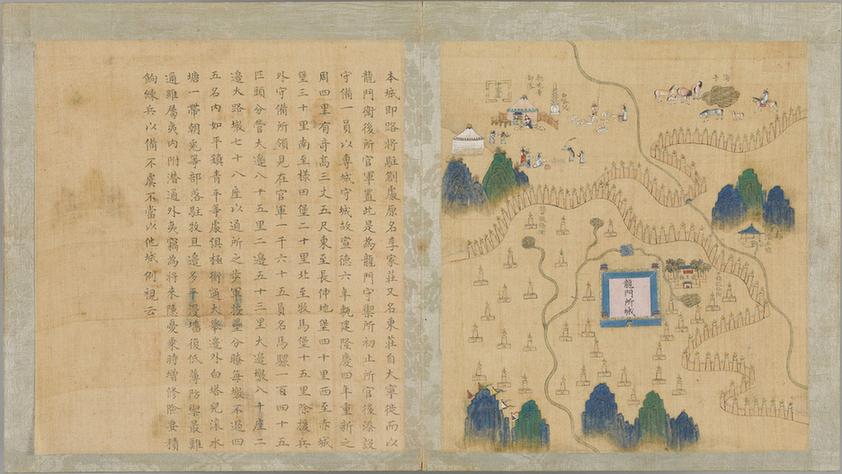 本城即路將駐劄處原名李家莊又名東莊自大寧徙而以
龍門衛後所官軍置此是為龍門守禦所初止所官後添設
守備一員以專城守城故宣德六年軌建隆慶四年重新之
周四里有奇高三丈五尺東至長伸地堡四十里西至赤城
堡三十里南至樣田堡二十里北至牧馬堡十五里除援兵
外守備所領見在官軍一千六十五員名馬騾一百四十五
匹頭分管大邊八十五里二邊五十三里大邊墩八十座二
邊大路墩七十八座以通所之步軍援壘分務每墩不過四
五名內如平鎮青平等處俱極衝通大舉邊外白塔兒滾水
塘一帶朝兎等部落駐牧且邊多平漫墻復低薄防禦最難
適雖屬夷內附潛通外夷竊為將來隱憂乘時增修險要積
餉練兵以備不虞不當以他城例視云
龍門所城